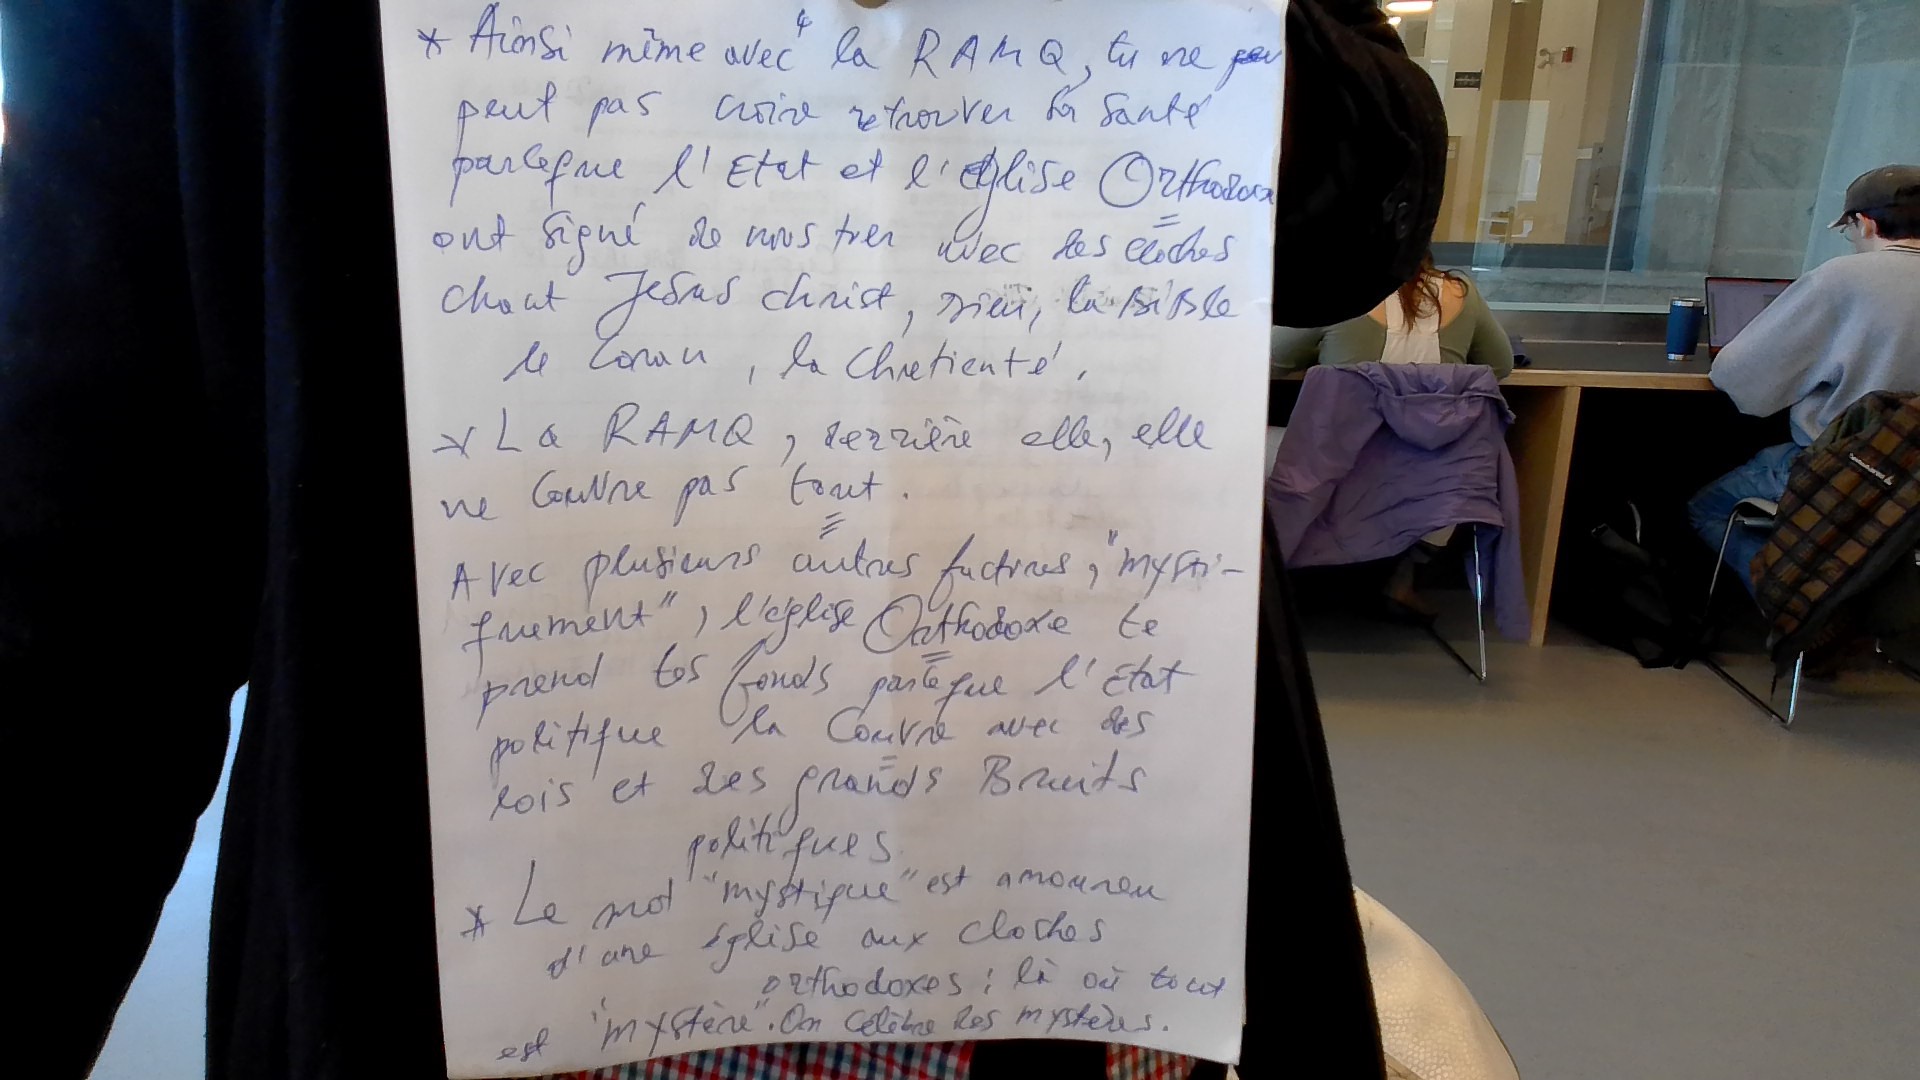 * Ainsi même avec la RAMQ, tu ne peu
peut pas croire retrouver ta santé
parceque l'Etat et l'église Orthodox
ont signé de nous tuer avec des cloches
chant Jesus christ, rien, la Bible
le Coran, la Chretienté.
* La RAMQ, derrière elle, elle
ne couvre pas tout.
Avec plusieurs autres factures, "mysti-
quement", l'église Orthodoxe te
prend tes fonds parceque l'Etat
politique la couvre avec des
lois et des grands Bruits
politiques
* Le mot "mystique" est amoureu
d'une église aux cloches
orthodoxes; là où tout
est "mystère". On célèbre des mystères.